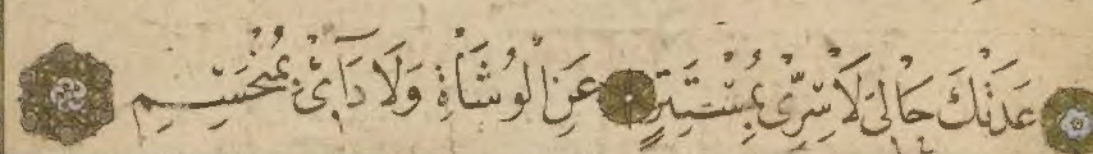 عَدَتْكَ حَالِىَ لَا سِرِّى بِمُسْتَتِرٍ عَنِ الْوُشَاةِ وَلَا دَائِى بِمُنْحَسِمِ